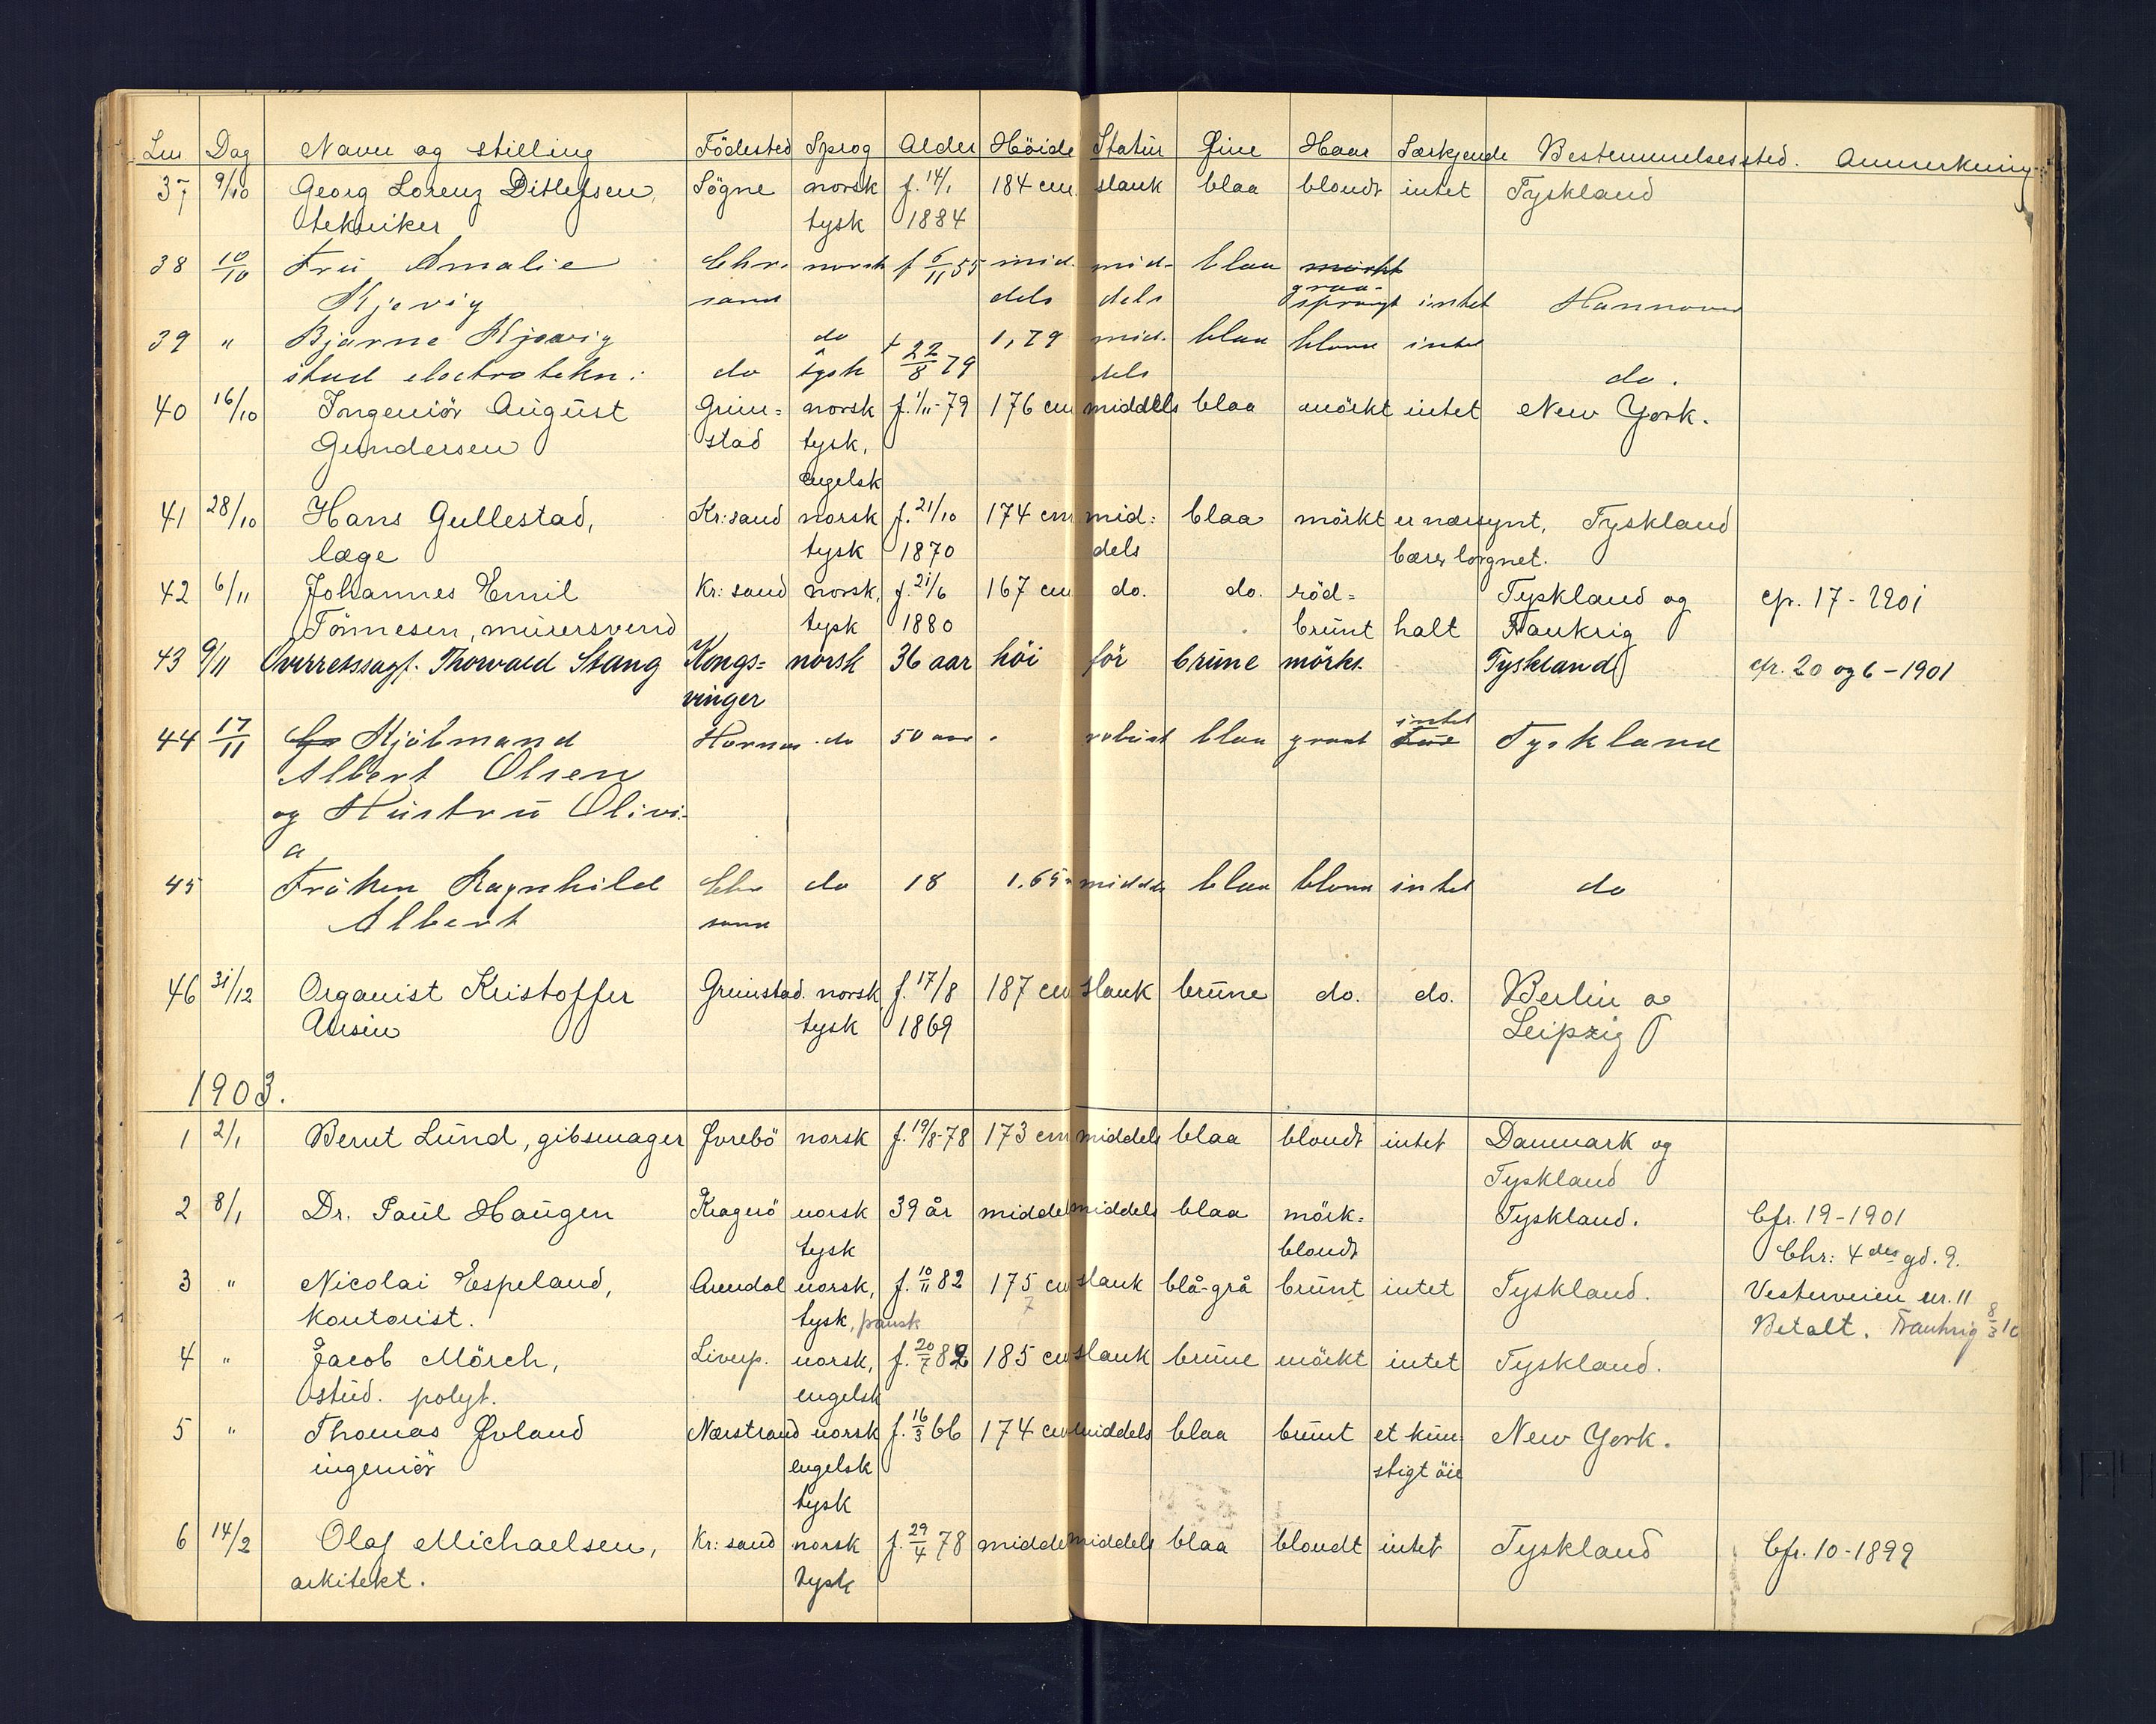 Lnr Dag Navn og stilling Födested Sprog Alder Höide Statur Øine Haar Særkjende Bestemmelsessted. Anmerkning
37 9/10 Georg Lorenz Ditlefsen, Sögne norsk f. 14/1 184 cm. slank blaa blondt intet Tyskland
tekniker tysk 1884
38 10/10 Fru Amalie Chr. norsk f 6/11 55 mid. mid- blaa mörkt
Kjevig sand dels dels graa- sprængt intet Hannover
39 " Bjarne Kjævig do 1,79 mid. blaa blond intet
stud electrotekn: do tysk f 22/8 79 dels do.
40 16/10 Ingeniör August Grim= norsk f. 1/11-79 176 cm middels blaa mörkt intet New York.
Gundersen stad tysk,
engelsk
41 28/10 Hans Gullestad, Kr:sand norsk f. 21/10 174 cm mid: blaa mörkt er nærsynt, Tyskland
læge tysk 1870 dels bærer lorgnet.
42 6/11 Johannes Emil Kr:sand norsk, f. 21/6 167 cm do. do. röd= Tyskland og cfr. 17-1901
Tönnesen, murersvend tysk 1880 brunt halt Frankrig
43 9/11 Overretssagf. Thorvald Stang Kongs= norsk 36 aar höi för brune mörkt. Tyskland cfr. 20 og 6-1901
vinger
44 17/11 Kjöbmand Hornnes do 50 aar robust blaa graat intet Tyskland
Albert Olsen
og Hustru Olivi-
a
45 Fröken Ragnhild Chr do 18 1.65 middels blaa blond intet do
Albert sand
46 31/12 Organist Kristoffer Grimstad. norsk f. 17/8 187 cm slank brune do. do. Berlin og
tysk 1869 Leipzig
1903.
1 2/1 Bernt Lund, gibsmager Øvrebö norsk f. 19/8-78 173 cm middels blaa blondt intet Danmark og
Tyskland
2 8/1 Dr. Paul Haugen Kragerö norsk 39 år middel middels blaa mörk= Tyskland. Cfr. 19-1901
tysk blondt Chr: 4des gd. 9.
3 " Nicolai Espeland, Arendal norsk, f. 10/11 82 175 cm slank blå-grå brunt intet Tyskland. Vesterveien nr. 11
kontorist. 7 tysk, fransk Betalt. Frankrig 8/3 10
4 " Jacob Mörch, Liverp. norsk, f. 20/7 82 185 cm slank brune mörkt intet Tyskland.
stud. polyt. engelsk
5 " Thomas Øvland Nærstrand norsk f. 16/3 66 174 cm middels blaa brunt et kun- New York.
ingeniör engelsk stigt öie
tysk
6 14/2 Olaf Michaelsen, Kr:sand norsk f. 29/4 78 middel middels blaa blondt intet Tyskland Cfr. 10-1899
arkitekt. tysk